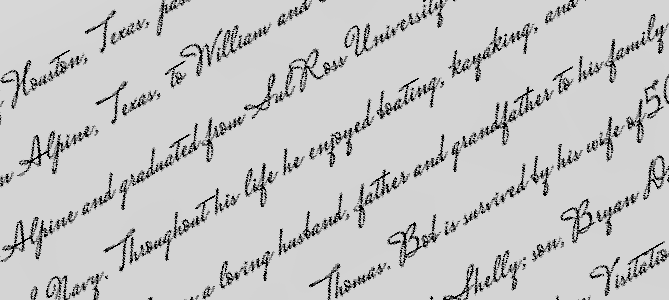 Houston, Texas,
Alpine, Texas, to William and
Alpine and graduated from Sul Ross University
Navy. Throughout his life he enjoyed boating, kayaking, and
a loving husband, father and grandfather to his family
Thomas. Bob is survived by his wife of 50
Shelly; son, Bryan
Visitation